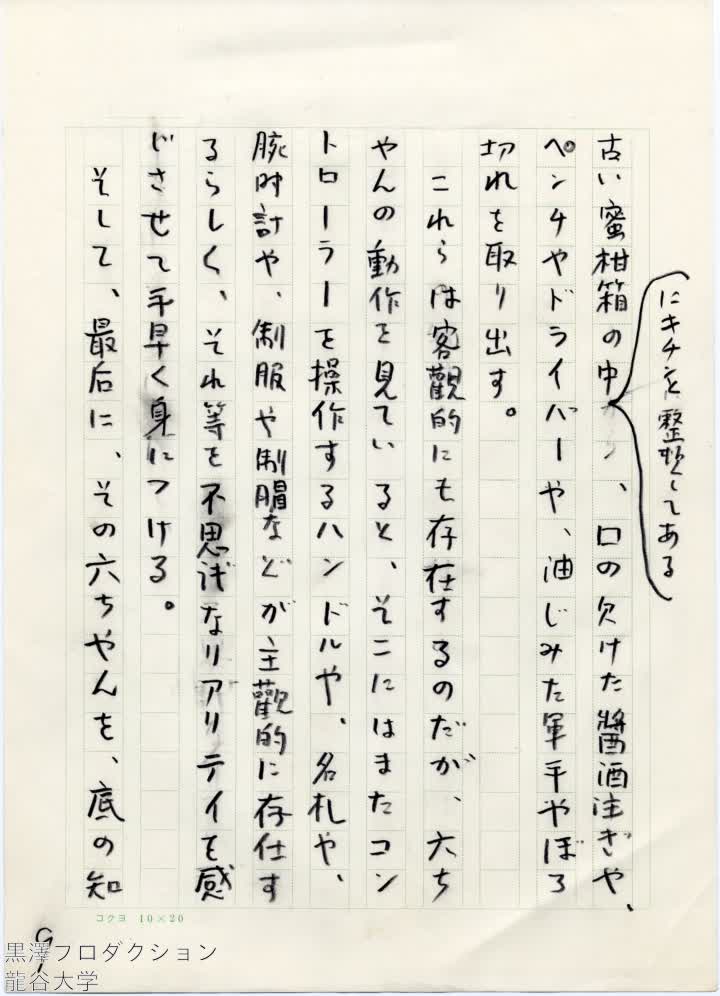 にキチンと整頓してある
古い蜜柑箱の中から、口の欠けた醬酒注ぎや、
ペンチやドライバーや、油じみた軍手やぼろ
切れを取り出す。
これらは客觀的にも存在するのだが、六ち
やんの動作を見ていると、そこにはまたコン
トローラーを操作するハンドルや、名札や、
腕時計や、制服や制帽などが主觀的に存在す
るらしく、それ等を不思議なリアリテイを感
じさせて手早く身につける。
そして、最后に、その六ちやんを、底の知
コクヨ 10×20
9
黒澤プロダクション
龍谷大学